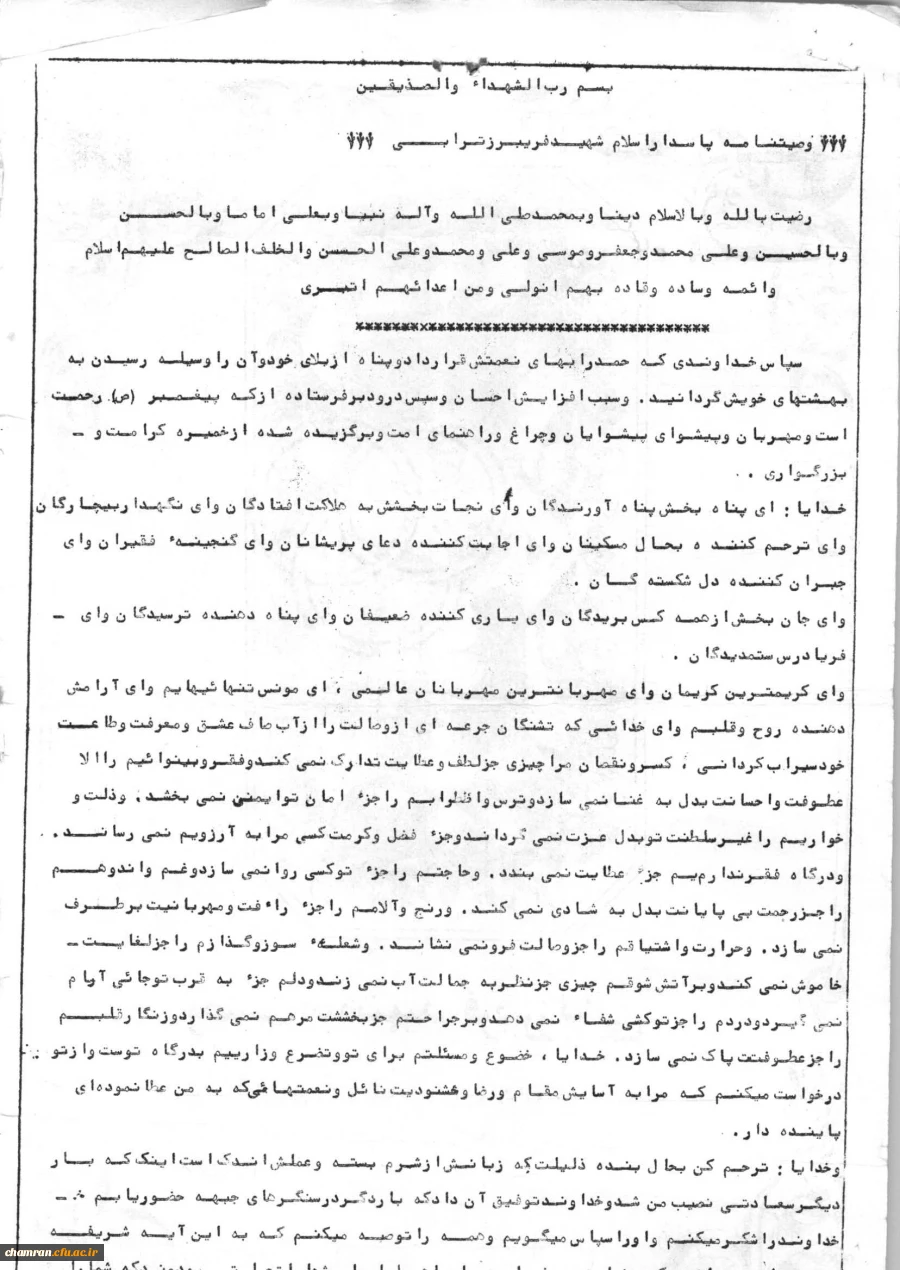 بسم رب الشهداء والصديقين
وصيتنامه پاسدار اسلام شهيد فريبرز ترابی
رضيت بالله وبالاسلام دينا وبمحمدصلی الله وآله نبيا وبعلی اماما وبالحسن
وبالحسين وعلی محمدوجعفروموسی وعلی ومحمدوعلی الحسن والخلف الصالح عليهم اسلام
وائمه وساده وقاده بهم اتولی ومن اعدائهم اتبری
****************************************
سپاس خداوندی که حمدرا بهای نعمتش قراردادوپناه ازبلای خودوآن را وسيله رسيدن به
بهشتهای خويش گردانيد . وسبب افزايش احسان وسپس درودبرفرستاده ازکه پيغمبر (ص) رحمت
است ومهربان وپيشوای پيشوايان وچراغ وراهنمای امت وبرگزيده شده ازخميره کرامت و ـ
بزرگواری . .
خدايا : ای پناه بخش پناه آورندگان وای نجات بخشش به هلاکت افتادگان وای نگهدار بيچارگان
وای ترحم کننده بحال مسکينان وای اجابت کننده دعای پريشانان وای گنجينهء فقيران وای
جبران کننده دل شکسته گان .
وای جان بخش ازهمه کس بريدگان وای ياری کننده ضعيفان وای پناه دهنده ترسيدگان وای ـ
فريادرس ستمديدگان .
وای کريمترين کريمان وای مهربانترين مهربانان عالمی ، ای مونس تنهائيهايم وای آرامش
دهنده روح وقلبم وای خدائی که تشنگان جرعه ای ازوصالت را ازآب صاف عشق ومعرفت وطاعت
خودسيراب کردانی ، کسرونقصان مرا چيزی جزلطف وعطايت تدارک نمی کندوفقروبينوائيم را الا
عطوفت واحسانت بدل به غنا نمی سازدوترس واظطرابم را جزء امان توايمنی نمی بخشد . وذلت و
خواريم را غيرسلطنت توبدل عزت نمی گرداندوجزء فضل وکرمت کسی مرا به آرزويم نمی رساند .
ودرگاه فقرنداريم جزء عطايت نمی بندد . وحاجتم را جزء توکسی روا نمی سازدوغم واندوهم
را جزرحمت بی پايانت بدل به شادی نمی کند . ورنج وآلامم را جزء رافت ومهربانيت برطرف
نمی سازد . وحرارت واشتياقم را جزوصالت فرونمی نشاند . وشعلهء سوزوگدازم را جزلقايت ـ
خاموش نمی کندوبرآتش شوقم چيزی جزنظربه جمالت آب نمی زندودلم جزء به قرب توجائی آرام
نمی گيردودردم را جزتوکشی شفاء نمی دهدوبرجراحتم جزبخششت مرهم نمی گذاردوزنگار قلبم
را جزعطوفتت پاک نمی سازد . خدايا ، خضوع ومسئلتم برای تووتضرع وزاريم بدرگاه توست وازتو
درخواست ميکنم که مرا به آسايش مقام ورضا وخشنوديت نائل ونعمتهائی که به من عطا نموده ای
پاينده دار .
وخدايا : ترحم کن بحال بنده ذليلت که زبانش ازشرم بسته وعملش اندک است اينک که بار
ديگرسعادتی نصيب من شدوخداوندتوفيق آن دادکه باردگردرسنگرهای جبهه حضوريابم
خداوندرا شکرميکنم واورا سپاس ميگويم وهمه را توصيه ميکنم که به اين آيه شريفه
chamran.cfu.ac.ir